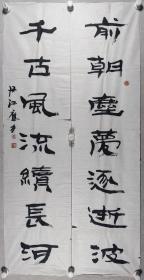 前朝塵夢逐逝波
千古風流續長河